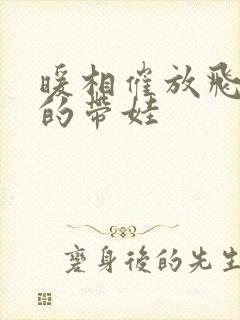 暖相催放飛
的帶娃
磨身後的先生